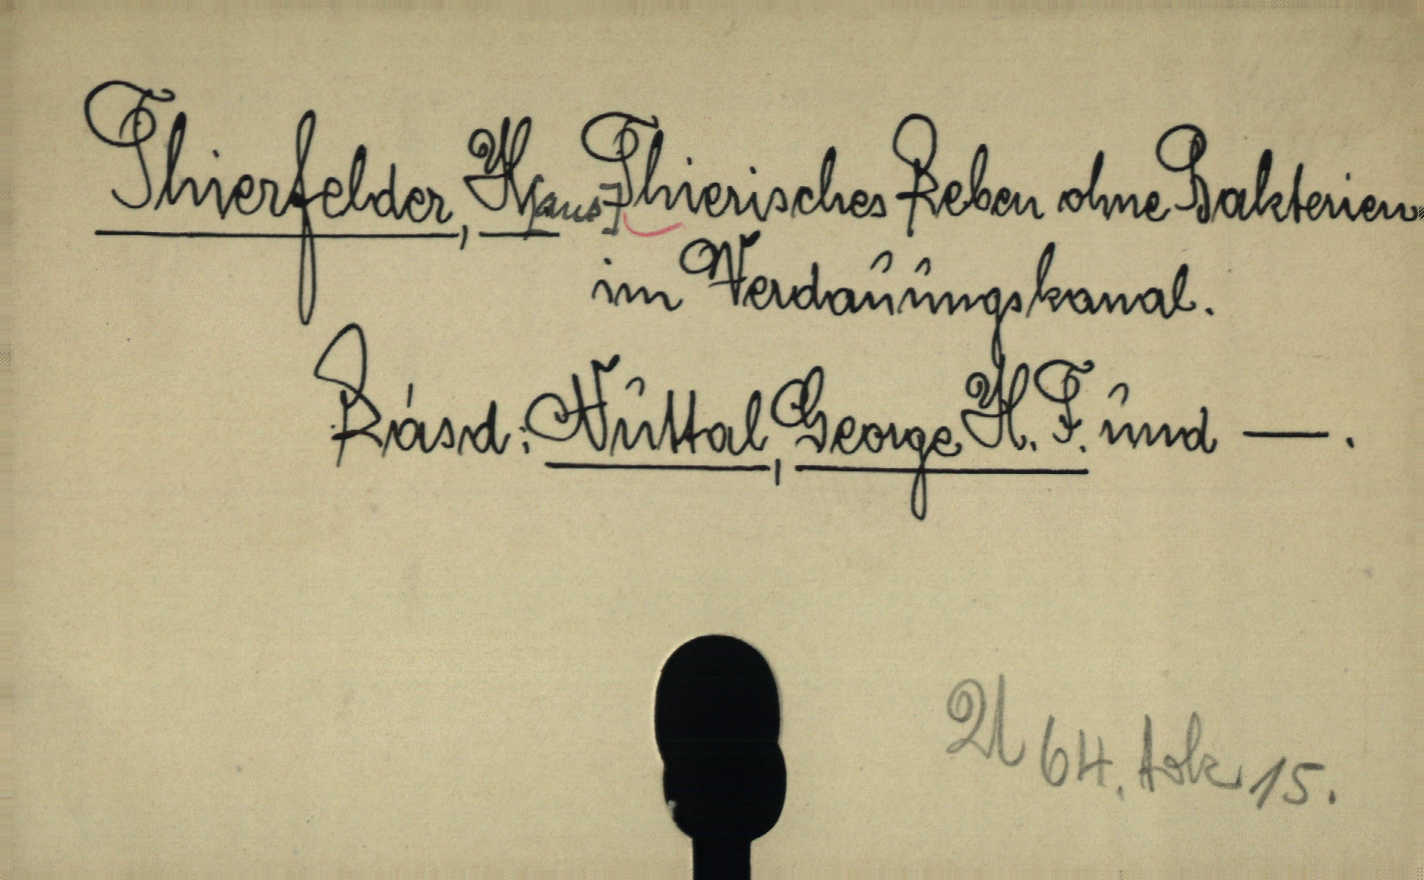 Thierfelder, H[ans] Thierisches Leben ohne Bakterien
im Verdauungskanal.
Lásd: Nuttal, George H. F. und —.
A 64. tok 15.